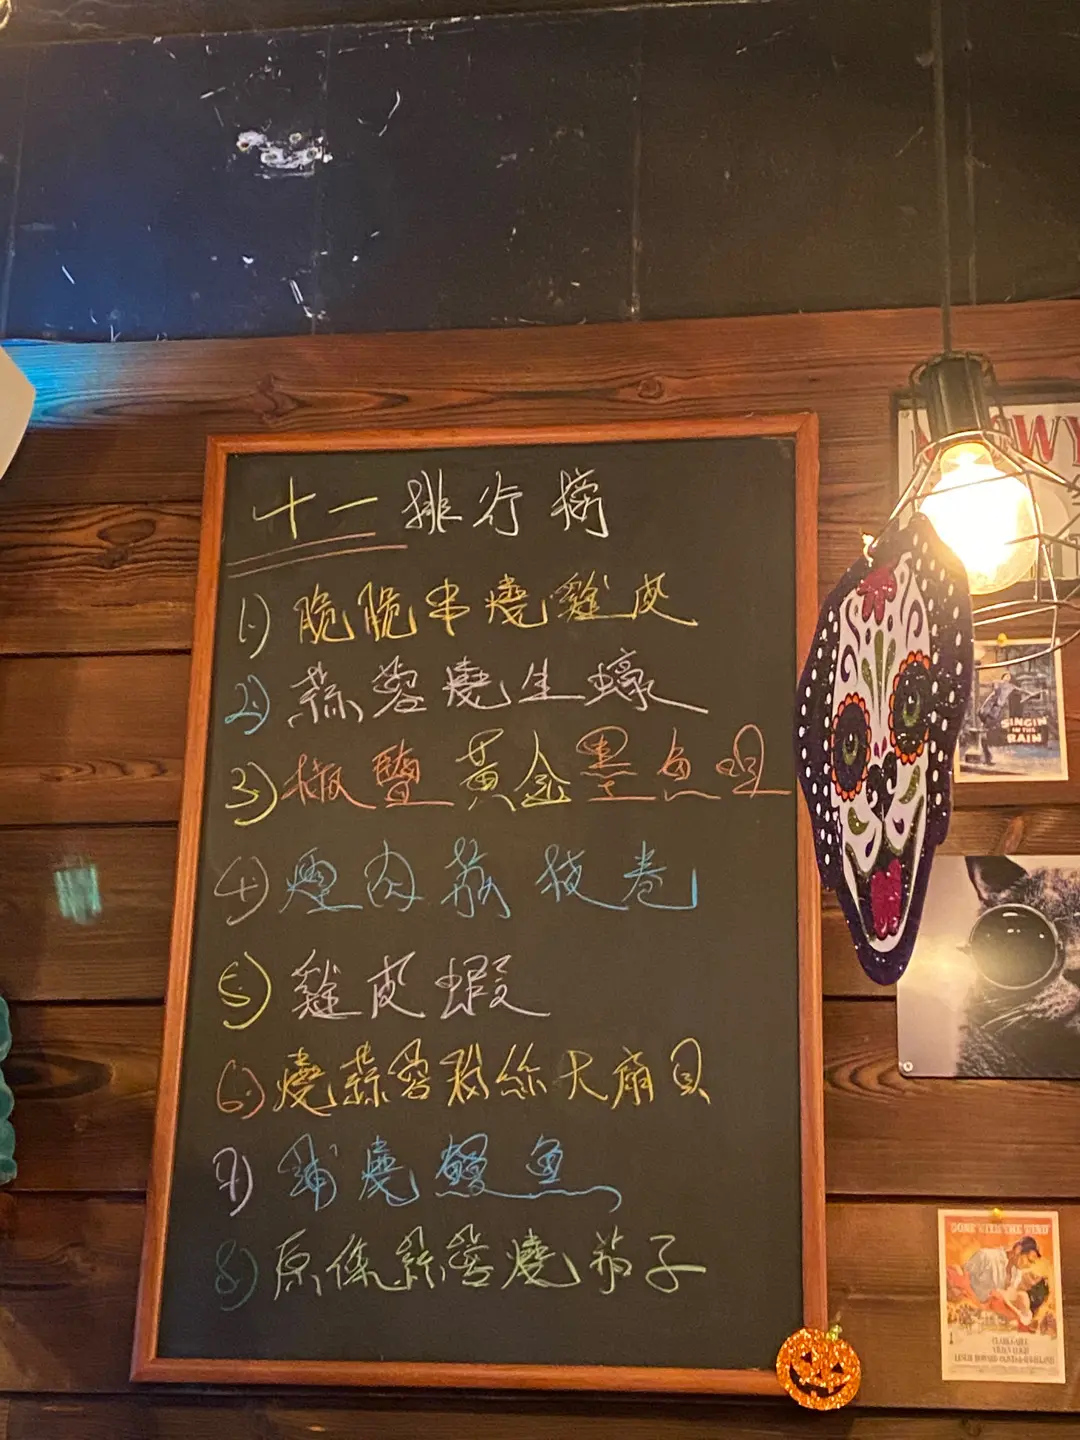 十一排行榜
1) 脆脆串燒雞皮
2) 蒜蓉燒生蠔
3) 椒鹽黃金墨魚咀
4) 煙肉荔枝卷
5) 雞皮蝦
6) 燒蒜蓉粉絲大扇貝
7) 蒲燒鰻魚
8) 原條蒜蓉燒茄子
SINGIN
IN THE
RAIN
GONE WITH THE WIND
CLARK GABLE
VIVIEN LEIGH
LESLIE HOWARD OLIVIA de HAVILLAND